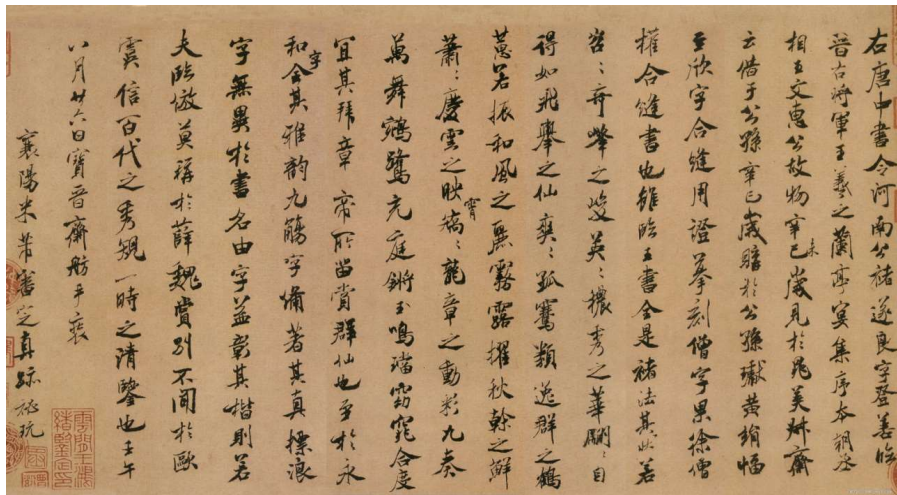 右唐中書令河南公褚遂良字登善臨
晉右將軍王羲之蘭亭宴集序本朝丞
相王文惠公故物辛未巳歲見於晁美叔齋
云借于公孫辛巳歲購於公孫瓛黃絹幅
至欣字合縫用證摹刻僧字果徐僧
權合縫書也雖臨王書全是褚法其狀若
岧岧奇峯之峻英英穠秀之華翩翩自
得如飛舉之仙爽爽孤騫類逸群之鶴
蕙若振和風之麗霧露擢秋幹之鮮
蕭蕭慶雲之映霄矯矯龍章之動彩九奏
萬舞鵷鷺充庭鏘玉鳴璫窈窕合度
宜其拜章帝所留賞群仙也至於永
和字全其雅韵九觴字備著其真標浪
字無異於書名由字益彰其楷則若
夫臨倣莫稱於薛魏賞別不聞於歐
虞信百代之秀規一時之清鑒也壬午
八月廿六日寶晉齋舫手裝
襄陽米芾審定真跡秘玩